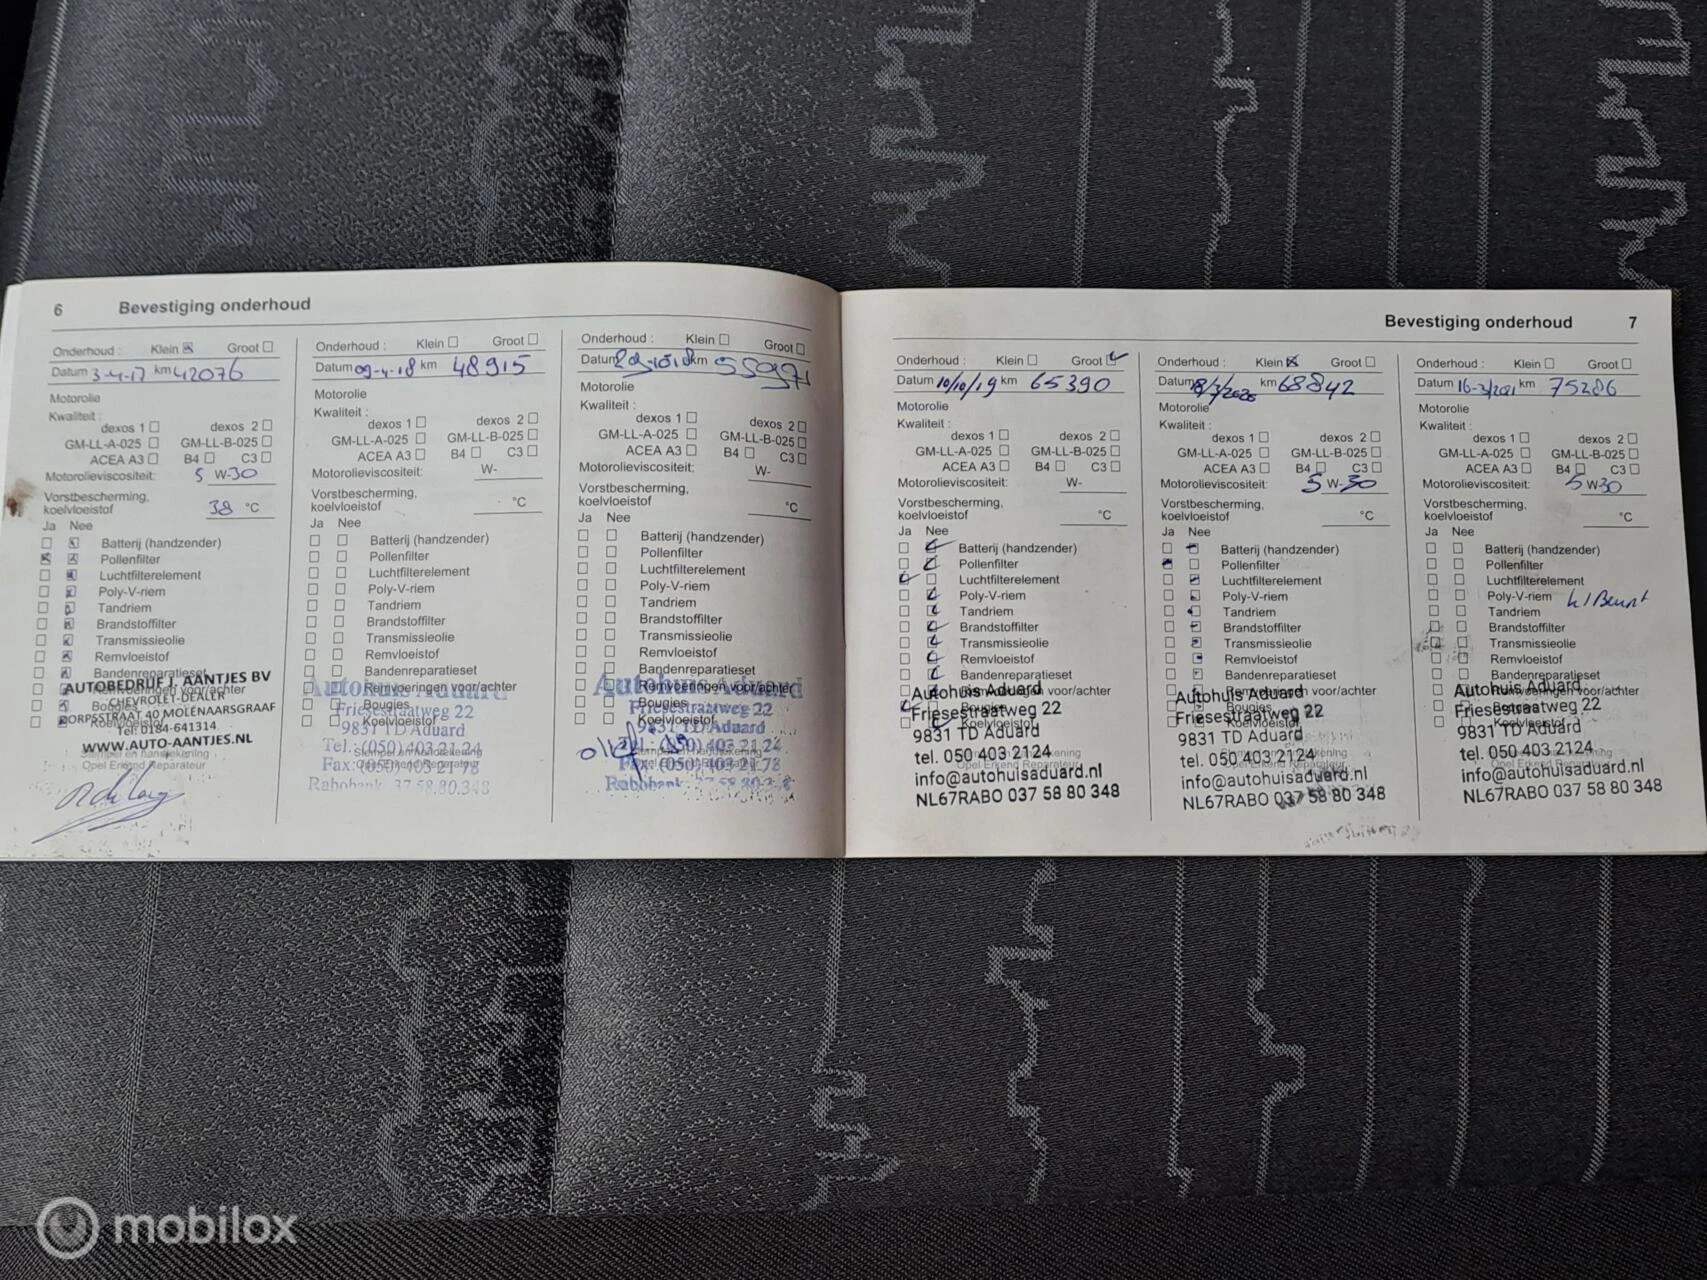 6 Bevestiging onderhoud
Onderhoud : Klein Groot
Datum 3-4-17 km 42076
Motorolie
Kwaliteit :
dexos 1 dexos 2
GM-LL-A-025 GM-LL-B-025
ACEA A3 B4 C3
Motorolieviscositeit: 5 W-30
Vorstbescherming,
koelvloeistof 38 °C
Ja Nee
Batterij (handzender)
Pollenfilter
Luchtfilterelement
Poly-V-riem
Tandriem
Brandstoffilter
Transmissieolie
Remvloeistof
Bandenreparatieset
AUTOBEDRIJF J. AANTJES BV
CHEVROLET-DEALER
DORPSSTRAAT 40 MOLENAARSGRAAF
Tel: 0184-641314
WWW.AUTO-AANTJES.NL
Opel Erkend Reparateur
Onderhoud : Klein Groot
Datum 09-4-18 km 48915
Motorolie
Kwaliteit :
dexos 1 dexos 2
GM-LL-A-025 GM-LL-B-025
ACEA A3 B4 C3
Motorolieviscositeit: W-
Vorstbescherming,
koelvloeistof °C
Ja Nee
Batterij (handzender)
Pollenfilter
Luchtfilterelement
Poly-V-riem
Tandriem
Brandstoffilter
Transmissieolie
Remvloeistof
Bandenreparatieset
Remvoeringen voor/achter
Autohuis Aduard
Bougies
Friesestraatweg 22
Koelvloeistof
9831 TD Aduard
Tel. (050) 403 21 24
Fax: (050) 403 21 78
Rabobank 37.58.80.348
Onderhoud : Klein Groot
Datum km
Motorolie
Kwaliteit :
dexos 1 dexos 2
GM-LL-A-025 GM-LL-B-025
ACEA A3 B4 C3
Motorolieviscositeit: W-
Vorstbescherming,
koelvloeistof °C
Ja Nee
Batterij (handzender)
Pollenfilter
Luchtfilterelement
Poly-V-riem
Tandriem
Brandstoffilter
Transmissieolie
Remvloeistof
Bandenreparatieset
Remvoeringen voor/achter
Autohuis Aduard
Bougies
Friesestraatweg 22
Koelvloeistof
9831 TD Aduard
Tel. (050) 403 21 24
Fax: (050) 403 21 78
Rabobank
Bevestiging onderhoud 7
Onderhoud : Klein Groot
Datum 10/10/19 km 65390
Motorolie
Kwaliteit :
dexos 1 dexos 2
GM-LL-A-025 GM-LL-B-025
ACEA A3 B4 C3
Motorolieviscositeit: W-
Vorstbescherming,
koelvloeistof °C
Ja Nee
Batterij (handzender)
Pollenfilter
Luchtfilterelement
Poly-V-riem
Tandriem
Brandstoffilter
Transmissieolie
Remvloeistof
Bandenreparatieset
Autohuis Aduard
Friesestraatweg 22
9831 TD Aduard
tel. 050 403 2124
info@autohuisaduard.nl
NL67RABO 037 58 80 348
Onderhoud : Klein Groot
Datum km 68842
Motorolie
Kwaliteit :
dexos 1 dexos 2
GM-LL-A-025 GM-LL-B-025
ACEA A3 B4 C3
Motorolieviscositeit: 5 W-30
Vorstbescherming,
koelvloeistof °C
Ja Nee
Batterij (handzender)
Pollenfilter
Luchtfilterelement
Poly-V-riem
Tandriem
Brandstoffilter
Transmissieolie
Remvloeistof
Bandenreparatieset
Autohuis Aduard
Friesestraatweg 22
9831 TD Aduard
tel. 050 403 2124
info@autohuisaduard.nl
NL67RABO 037 58 80 348
Onderhoud : Klein Groot
Datum 16-3/2021 km 75286
Motorolie
Kwaliteit :
dexos 1 dexos 2
GM-LL-A-025 GM-LL-B-025
ACEA A3 B4 C3
Motorolieviscositeit: 5 W 30
Vorstbescherming,
koelvloeistof °C
Ja Nee
Batterij (handzender)
Pollenfilter
Luchtfilterelement
Poly-V-riem
Tandriem
Brandstoffilter
Transmissieolie
Remvloeistof
Bandenreparatieset
Autohuis Aduard
Friesestraatweg 22
9831 TD Aduard
tel. 050 403 2124
info@autohuisaduard.nl
NL67RABO 037 58 80 348
mobilox